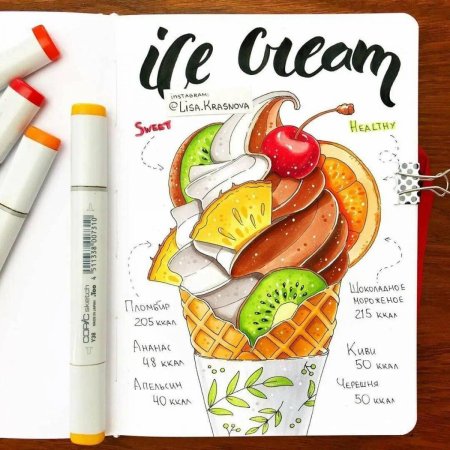 ice cream
INSTAGRAM:
@LISA.KRASNOVA
SWEET
HEALTHY
Пломбир
205 ккал
Ананас
48 ккал
Апельсин
40 ккал
Шоколадное
мороженое
215 ккал
Киви
50 ккал
Черешня
50 ккал
COPIC sketch
Y38
4 511338 007310